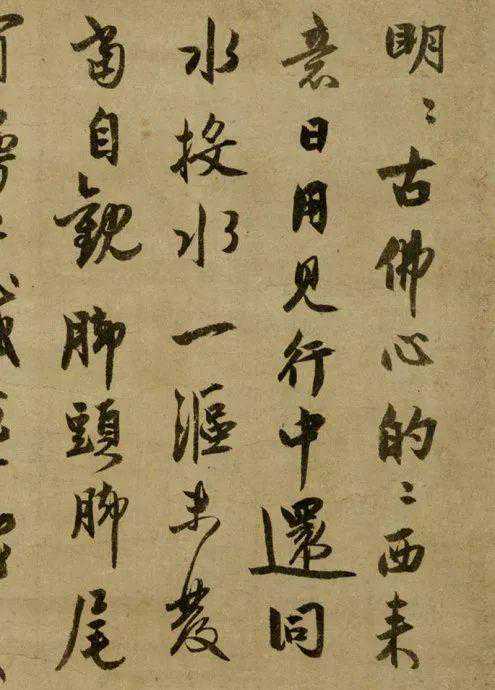 明〻古佛心的〻西来
意日用見行中還同
水投水一漚未發
當自觀脚頭脚尾